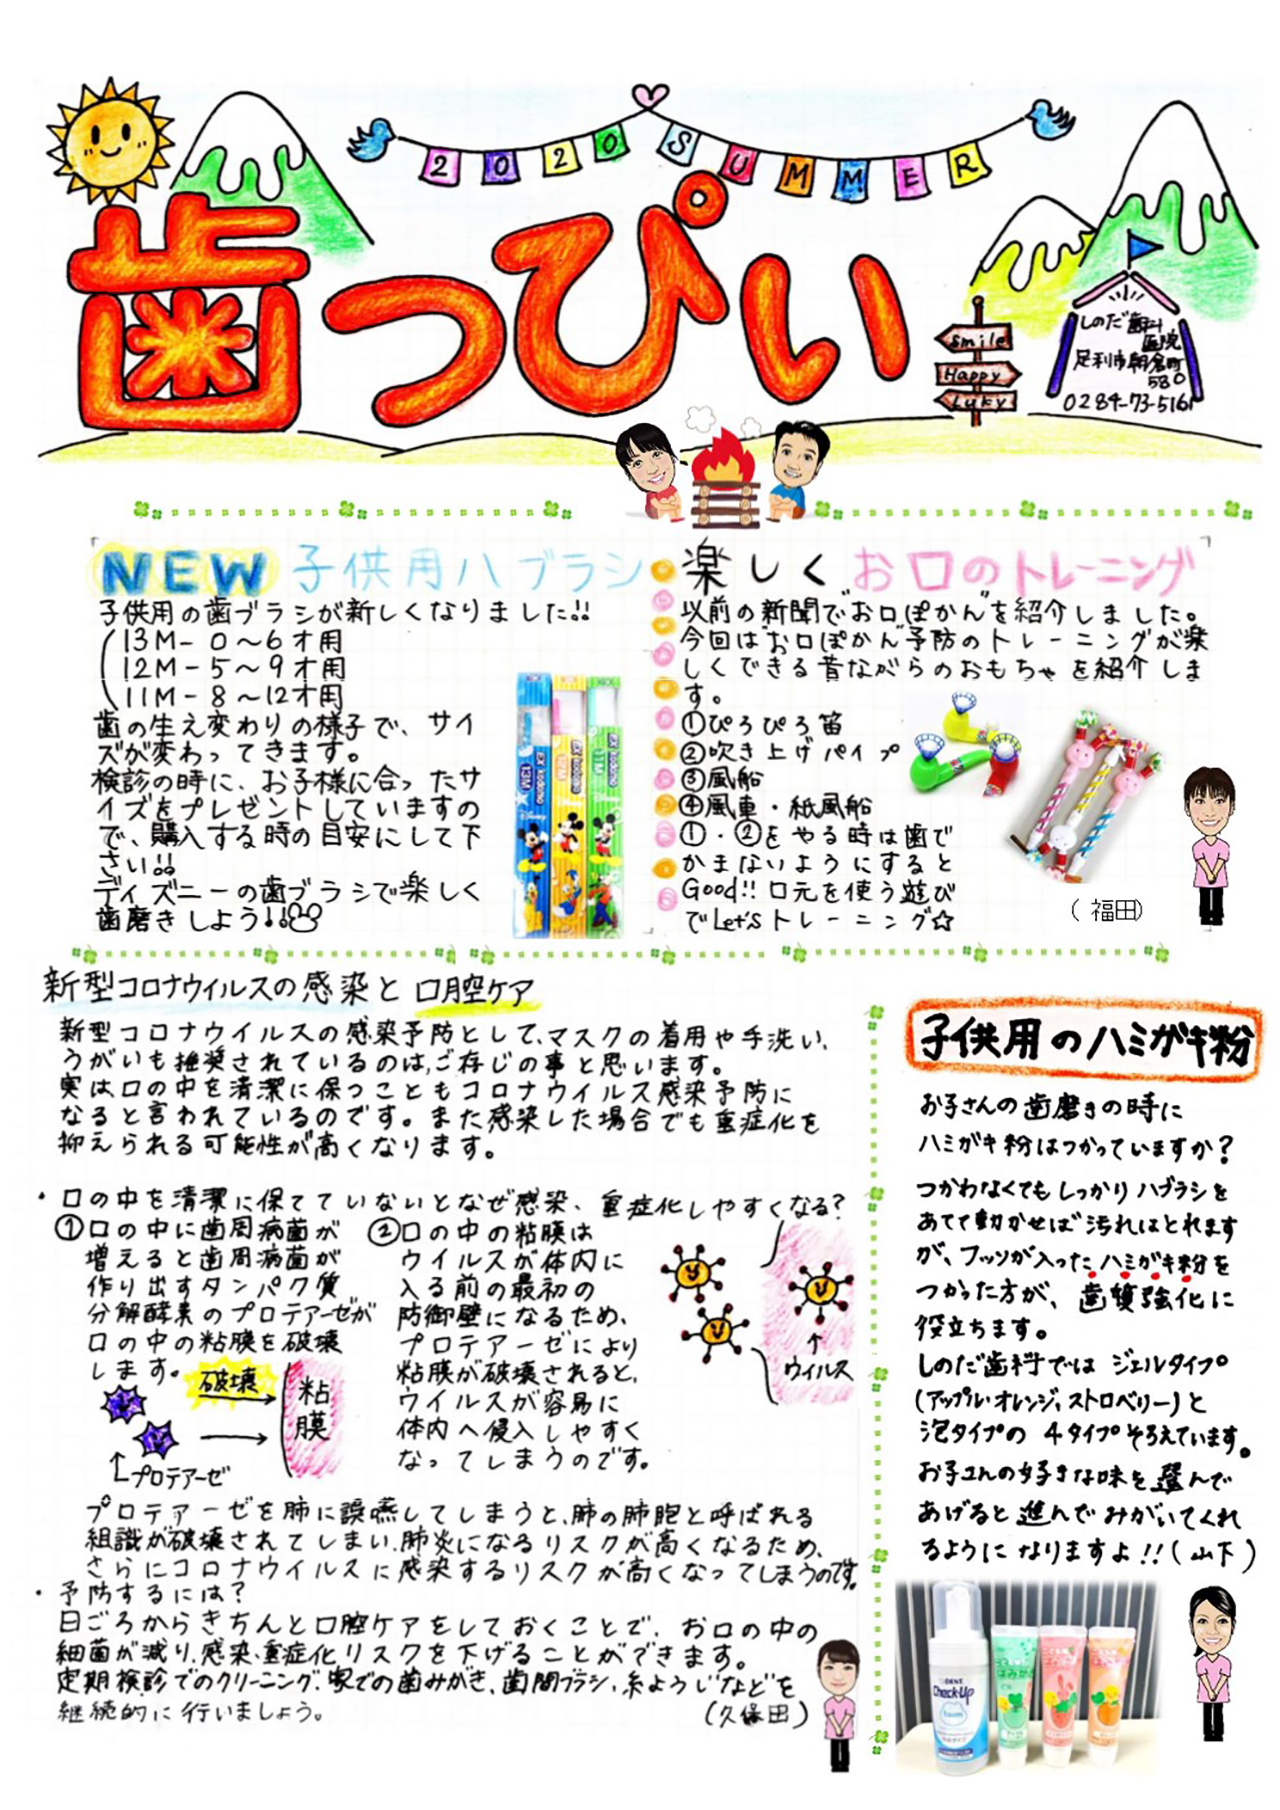 2020 SUMMER
歯っぴい
Smile
Happy
Luky
しのだ歯科
医院
足利市朝倉町
580
0284-73-5161
NEW 子供用ハブラシ
子供用の歯ブラシが新しくなりました!!
13M- 0〜6才用
12M- 5〜9才用
11M- 8〜12才用
歯の生え変わりの様子で、サイ
ズが変わってきます。
検診の時に、お子様に合ったサ
イズをプレゼントしていますの
で、購入する時の目安にして下
さい!!
ディズニーの歯ブラシで楽しく
歯磨きしよう!!
楽しくお口のトレーニング
以前の新聞で"お口ぽかん"を紹介しました。
今回は"お口ぽかん"予防のトレーニングが楽
しくできる昔ながらのおもちゃを紹介しま
す。
①ぴろぴろ笛
②吹き上げパイプ
③風船
④風車・紙風船
①・②をやる時は歯で
かまないようにすると
Good!!口元を使う遊び
でLet'sトレーニング☆
(福田)
新型コロナウイルスの感染と口腔ケア
新型コロナウイルスの感染予防として、マスクの着用や手洗い、
うがいも推奨されているのは、ご存じの事と思います。
実は口の中を清潔に保つこともコロナウイルス感染予防に
なると言われているのです。また感染した場合でも重症化を
抑えられる可能性が高くなります。
・口の中を清潔に保てていないとなぜ感染、重症化しやすくなる?
①口の中に歯周病菌が
増えると歯周病菌が
作り出すタンパク質
分解酵素のプロテアーゼが
口の中の粘膜を破壊
します。
破壊
粘膜
↑プロテアーゼ
②口の中の粘膜は
ウイルスが体内に
入る前の最初の
防御壁になるため、
プロテアーゼにより
粘膜が破壊されると、
ウイルスが容易に
体内へ侵入しやすく
なってしまうのです。
↑
ウイルス
プロテアーゼを肺に誤嚥してしまうと、肺の肺胞と呼ばれる
組識が破壊されてしまい、肺炎になるリスクが高くなるため、
さらにコロナウイルスに感染するリスクが高くなってしまうのです。
・予防するには?
日ごろからきちんと口腔ケアをしておくことで、お口の中の
細菌が減り、感染、重症化リスクを下げることができます。
定期検診でのクリーニング、家での歯みがき、歯間ブラシ、糸ようじなどを
継続的に行いましょう。
(久保田)
子供用のハミガキ粉
お子さんの歯磨きの時に
ハミガキ粉はつかっていますか?
つかわなくてもしっかりハブラシを
あてて動かせば汚れはとれます
が、フッソが入ったハミガキ粉を
つかった方が、歯質強化に
役立ちます。
しのだ歯科ではジェルタイプ
(アップル、オレンジ、ストロベリー)と
泡タイプの4タイプそろえています。
お子さんの好きな味を選んで
あげると進んでみがいてくれ
るようになりますよ!!(山下)
Check-Up
foam